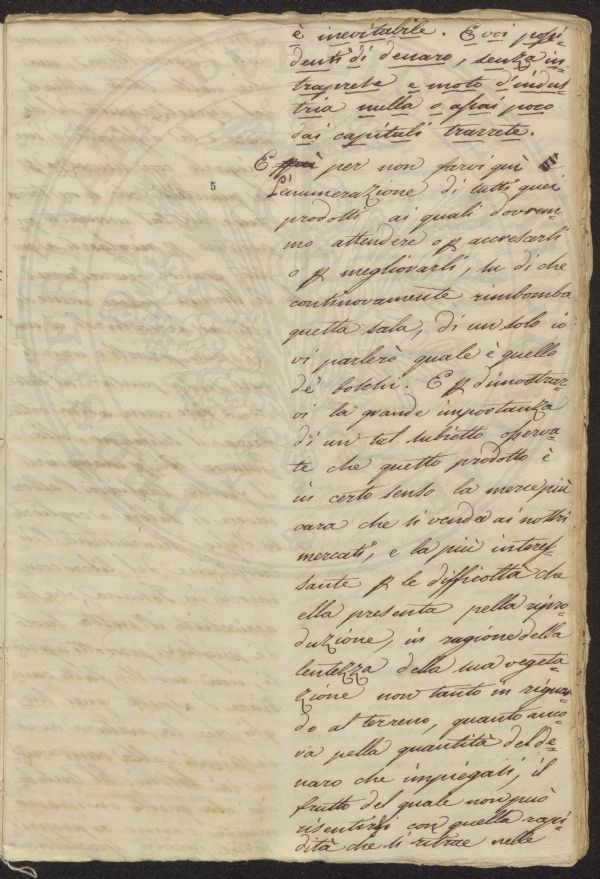 è inevitabile. E voi possi-
denti di denaro, senza in-
traprese e moto d'indus-
tria nulla o assai poco
dai capitali trarrete.
E per non farvi quì
5
l'enumerazione di tutti quei
prodotti, ai quali dovrem-
mo attendere o p accrescerli
o p megliorarli, su di che
continovamente rimbomba
questa sala, di un solo io
vi parlerò quale è quello
de' boschi. E p dimostrar-
vi la grande importanza
di un tal subietto osserva-
te che questo prodotto è
in certo senso la merce più
cara che si vende ai nostri
mercati, e la più interes-
sante p le difficoltà che
ella presenta pella ripro-
duzione, in ragione della
lentezza della sua vegeta-
zione non tanto in riguar-
do al terreno, quanto anco-
ra pella quantità del de-
naro che impiegasi, il
frutto del quale non può
risentirsi con quella rapi-
dità che si ritrae nelle